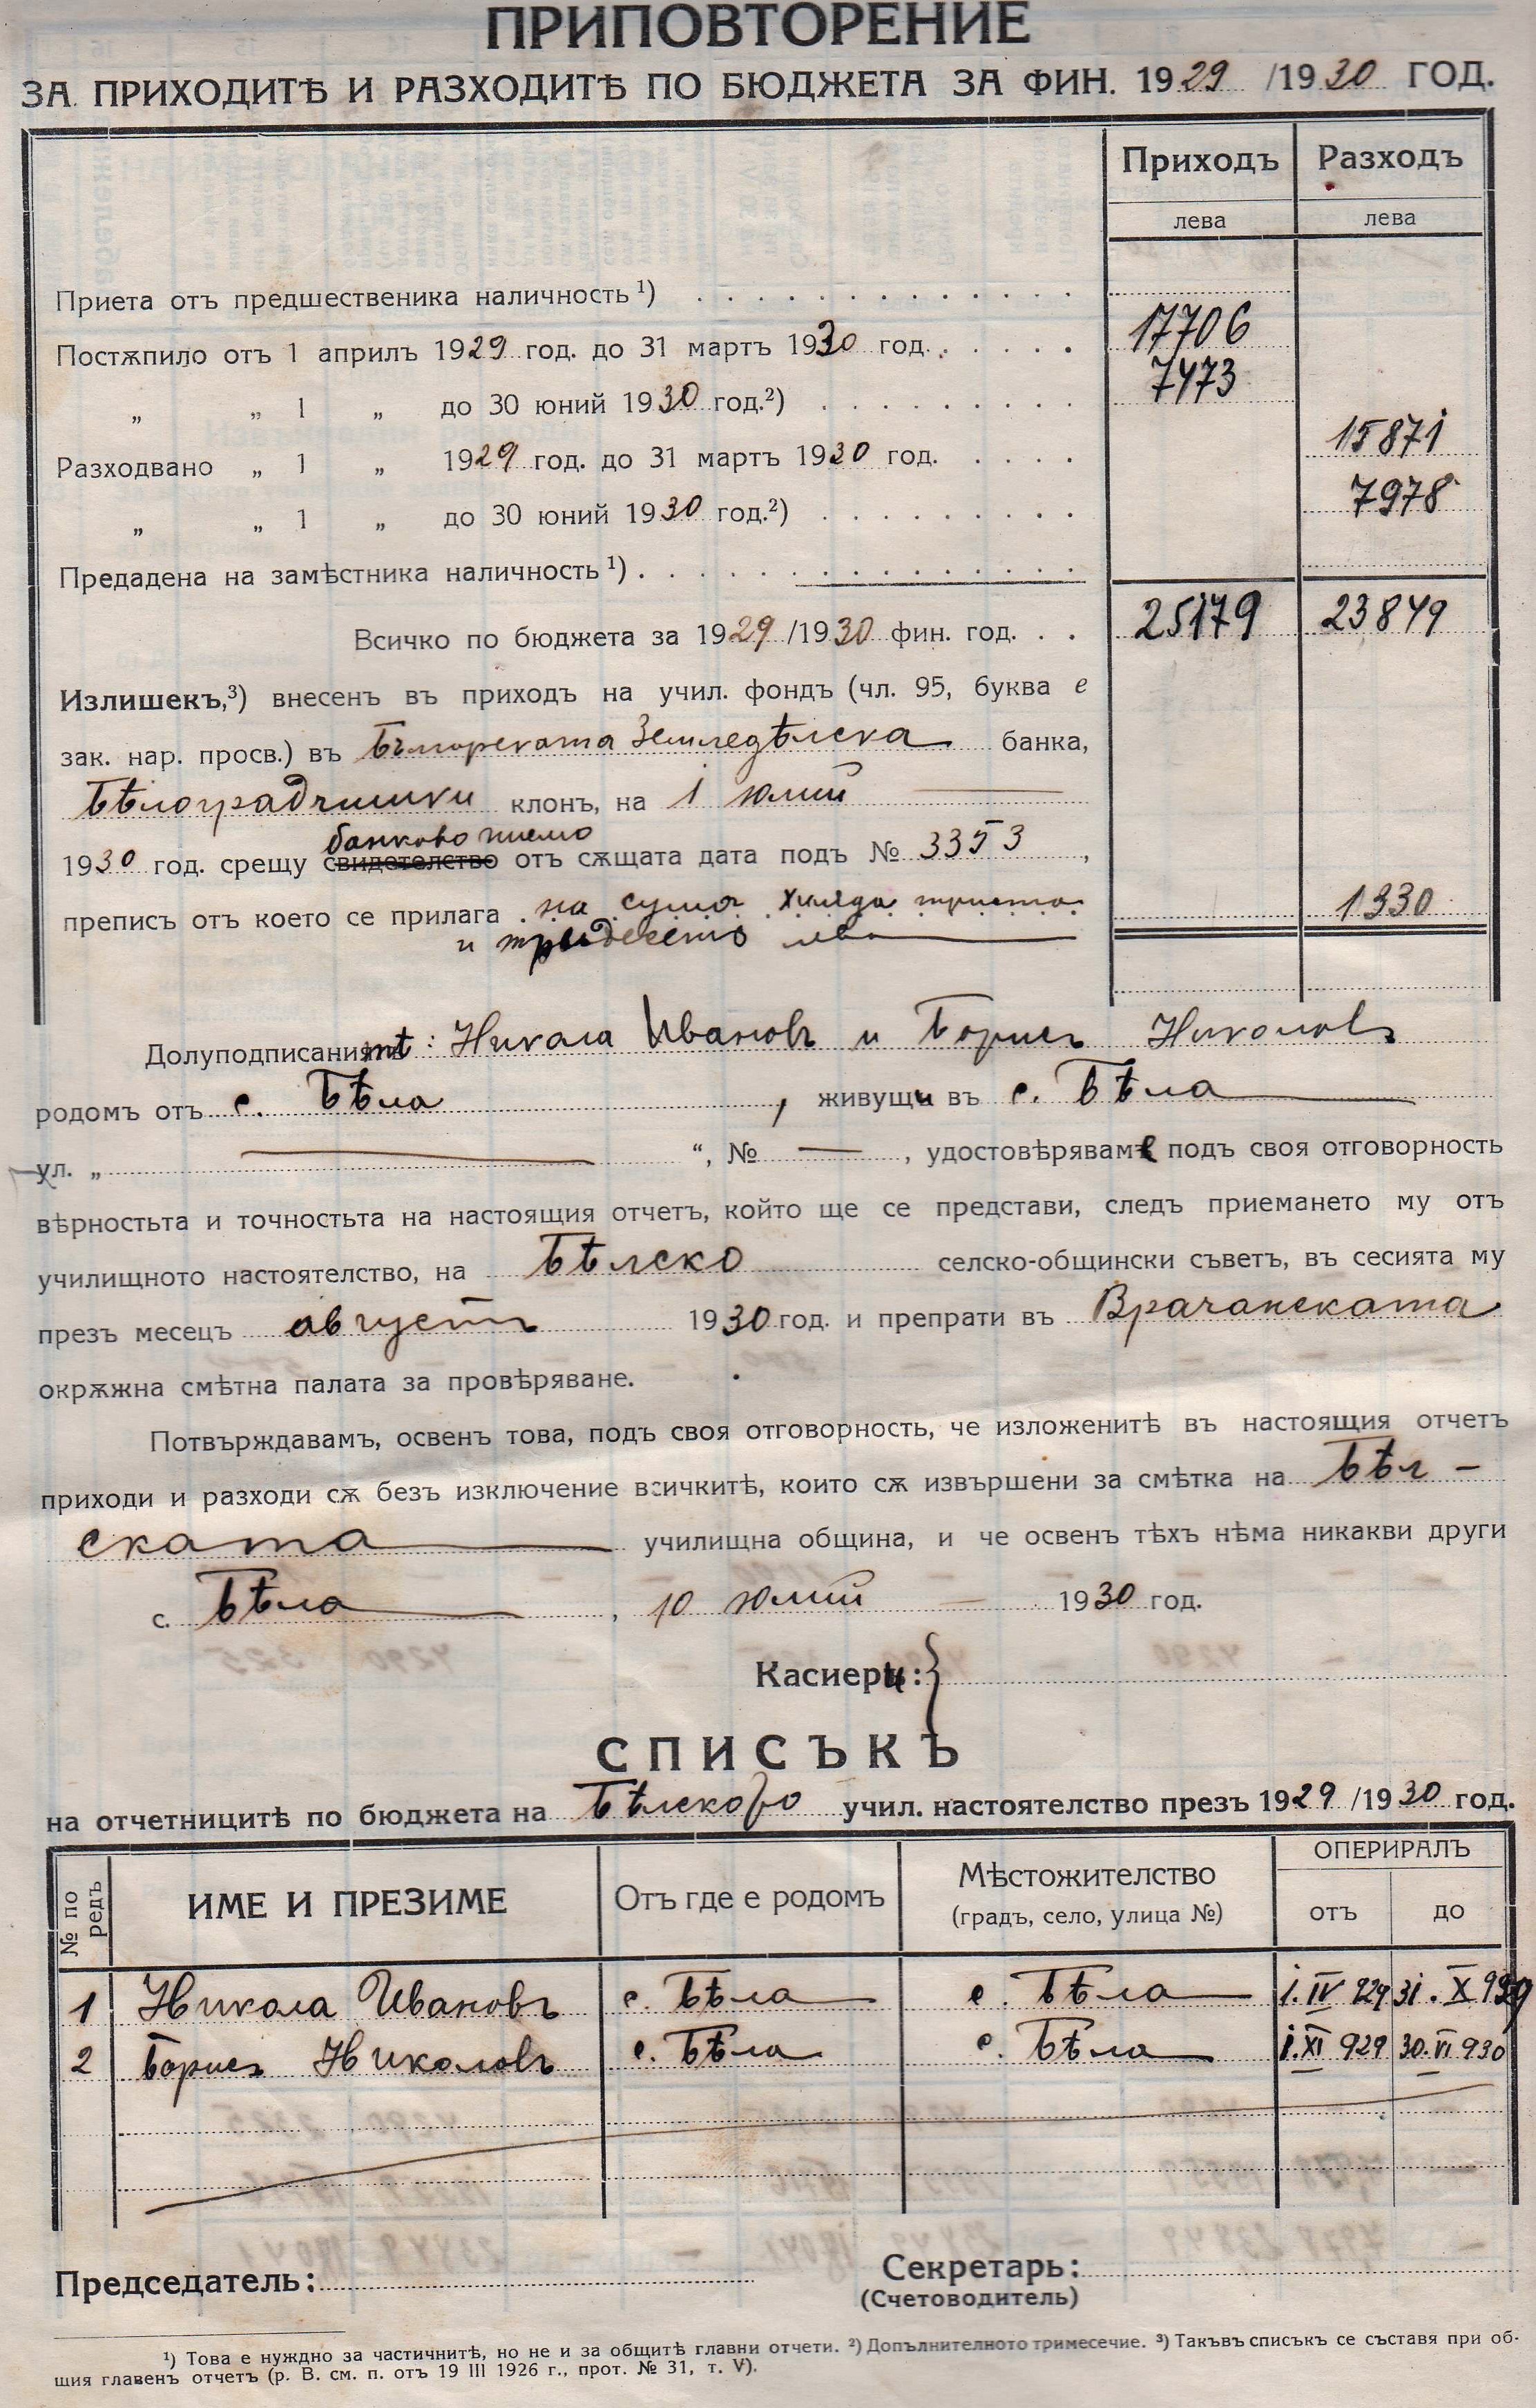 ПРИПОВТОРЕНИЕ
ЗА ПРИХОДИТѢ И РАЗХОДИТѢ ПО БЮДЖЕТА ЗА ФИН. 1929 /1930 ГОД.
Приходъ Разходъ
лева лева
Приета отъ предшественика наличность ¹) . . . . . . . . . . . . .
Постѫпило отъ 1 априлъ 1929 год. до 31 мартъ 1930 год. . . . . . 17706
„ „ 1 „ до 30 юний 1930 год.²) . . . . . . . . . 7473
Разходвано „ 1 „ 1929 год. до 31 мартъ 1930 год. . . . . 15871
„ „ 1 „ до 30 юний 1930 год.²) . . . . . . . . . 7978
Предадена на замѣстника наличность ¹) . . . . . . . . . . . . . . .
Всичко по бюджета за 1929 /1930 фин. год. . . 25179 23849
Излишекъ,³) внесенъ въ приходъ на учил. фондъ (чл. 95, буква е
зак. нар. просв.) въ Българската Земледѣлска банка,
Бѣлоградчишки клонъ, на 1 юлий
банково писмо
1930 год. срещу свидетелство отъ сѫщата дата подъ № 3353,
преписъ отъ което се прилага на сума хиляда триста 1330
и тридесетъ лева
Долуподписанитѣ: Никола Ивановъ и Борисъ Николовъ
родомъ отъ с. Бѣла, живущи въ с. Бѣла
ул. „ — “, № — , удостовѣрявамe подъ своя отговорность
вѣрностьта и точностьта на настоящия отчетъ, който ще се представи, следъ приемането му отъ
училищното настоятелство, на Бѣлско селско-общински съветъ, въ сесията му
презъ месецъ августъ 1930 год. и препрати въ Врачанската
окрѫжна смѣтна палата за провѣряване.
Потвърждавамъ, освенъ това, подъ своя отговорность, че изложенитѣ въ настоящия отчетъ
приходи и разходи сѫ безъ изключение всичкитѣ, които сѫ извършени за смѣтка на Бѣл-
ската училищна община, и че освенъ тѣхъ нѣма никакви други
с. Бѣла, 10 юлий 1930 год.
Касиери:
СПИСЪКЪ
на отчетницитѣ по бюджета на Бѣлското учил. настоятелство презъ 1929 /1930 год.
№ по редъ ИМЕ И ПРЕЗИМЕ Отъ где е родомъ Мѣстожителство (градъ, село, улица №) ОПЕРИРАЛЪ отъ до
1 Никола Ивановъ с. Бѣла с. Бѣла 1. IV 929 31. X 929
2 Борисъ Николовъ с. Бѣла с. Бѣла 1. XI 929 30. VI 930
Председатель: Секретарь:
(Счетоводитель)
¹) Това е нуждно за частичнитѣ, но не и за общитѣ главни отчети. ²) Допълнителното тримесечие. ³) Такъвъ списъкъ се съставя при об-
щия главенъ отчетъ (р. В. см. п. отъ 19 III 1926 г., прот. № 31, т. V).